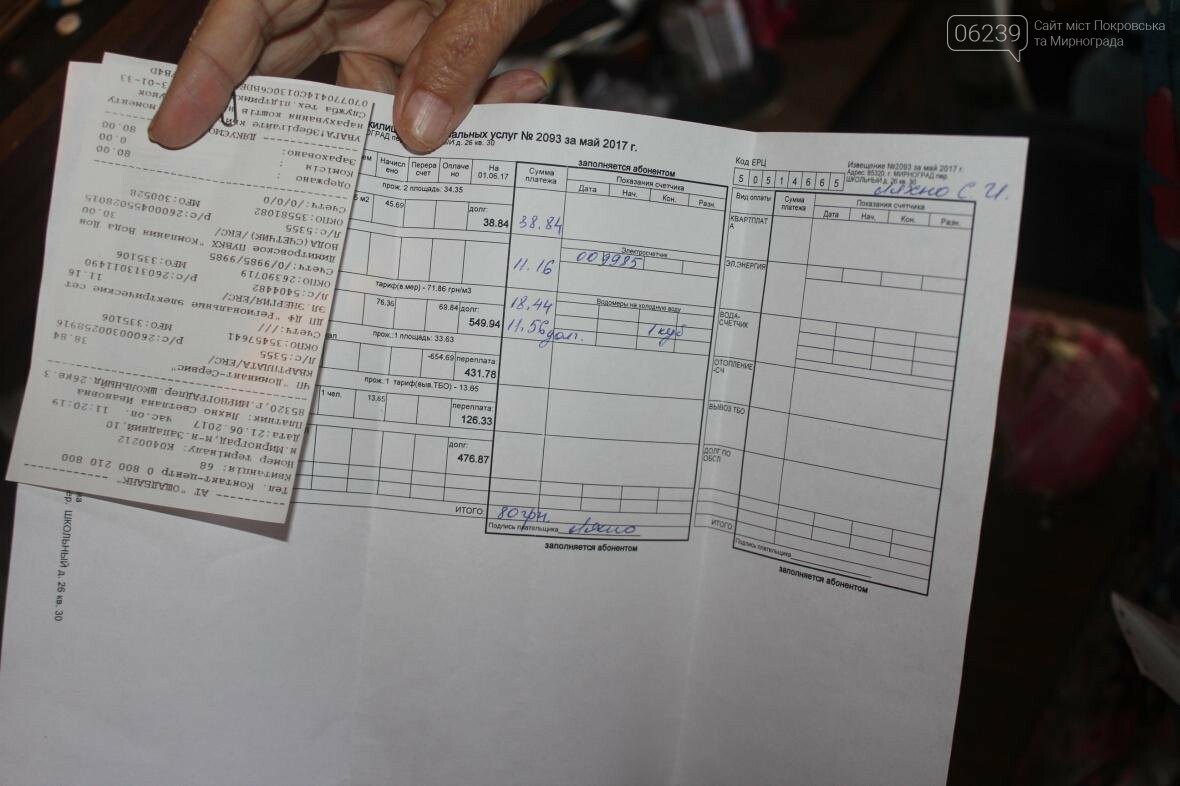 06239
Сайт міст Покровська
та Мирнограда
АТ "ОЩАДБАНК"
Тел. Контакт-центр 0 800 210 800
Квитанція: 68
Номер терміналу: К0400212
м.Мирноград,м-н.Западний,10
Дата:21.06.2017 час.оп. 11:20:19
Платник: Ляхно Светлана Ивановна
85320,г.МИРНОГРАД,пер.ШКОЛЬНЫЙ,д.26кв.3
ЧП "Доминант-Сервис"
КВАРТПЛАТА/ЕRC/
Л/с:5355 38.84
ОКПО:35457641 Р/с:26000300258916
Счетч:/// МФО:335106
ДП ДФ "Региональные электрические сет
ЭЛ.ЭНЕРГИЯ/ЕRC/
Л/с:5404482 11.16
ОКПО:26390719 Р/с:26033013011490
Счетч:/0/9985/9985 МФО:335106
Димитровское ПУВКХ "Компания Вода Дон
ВОДА(СЧЕТЧИК)/ЕRC/ 30.00
Л/с:5355
ОКПО:35581082 Р/с:26000455028015
Счетч:/0/0/0 МФО:300528
Одержано : 80.00
Комісія : 0.00
Зараховано: 80.00
ДЯКУЄМО
УВАГА!Зберігайте
нарахування коштів
Служба тех.підтримки
альных услуг № 2093 за май 2017 г.
ОГРАД пер. ШКОЛЬНЫЙ д. 26 кв. 30
Начисл
ено
Перера
счет
Оплаче
но
На
01.06.17
Сумма
платежа
заполняется абонентом
Показания счетчика
Дата Нач. Кон. Разн.
прож. 2 площадь: 34.35
м2 45.69 долг:
38.84 38.84
Электросчетчик
11.16 009985
тариф(в.мер) - 71.86 грн/м3
76.36 69.84 долг:
549.94
18.44 Водомеры на холодную воду
11.56 дол. 1 куб
прож.:1 площадь: 33.63
-654.69 переплата
431.78
прож.:1 тариф(выв.ТБО) - 13.65
1 чел. 13.65 переплата:
126.33
долг:
476.87
ИТОГО: 80 грн.
Подпись плательщика Ляхно
заполняется абонентом
Код ЕРЦ
5 0 5 1 4 6 6 5
Извещение №2093 за май 2017 г.
Адрес: 85320, г. МИРНОГРАД пер.
ШКОЛЬНЫЙ д. 26 кв. 30
Ляхно С. И.
Вид оплаты
Сумма
платежа
Показания счетчика
Дата Нач. Кон. Разн.
КВАРТПЛАТ
А
ЭЛ.ЭНЕРГИЯ
ВОДА-
СЧЕТЧИК
ОТОПЛЕНИЕ
-СЧ
ВЫВОЗ ТБО
ДОЛГ ПО
ОБСЛ
ИТОГО
Подпись плательщика
заполняется абонентом
ер. ШКОЛЬНЫЙ д. 26 кв. 30